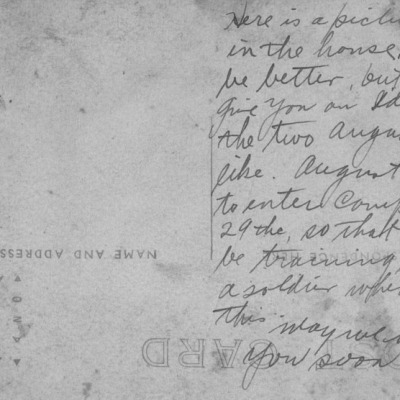 Here is a pictu
in the house,
be better, but
give you an Id
the two Augu
like. August
to enter Camp
29the, so that
be training
a soldier whe
this way
you soon
NAME AND ADDRESS
CARD